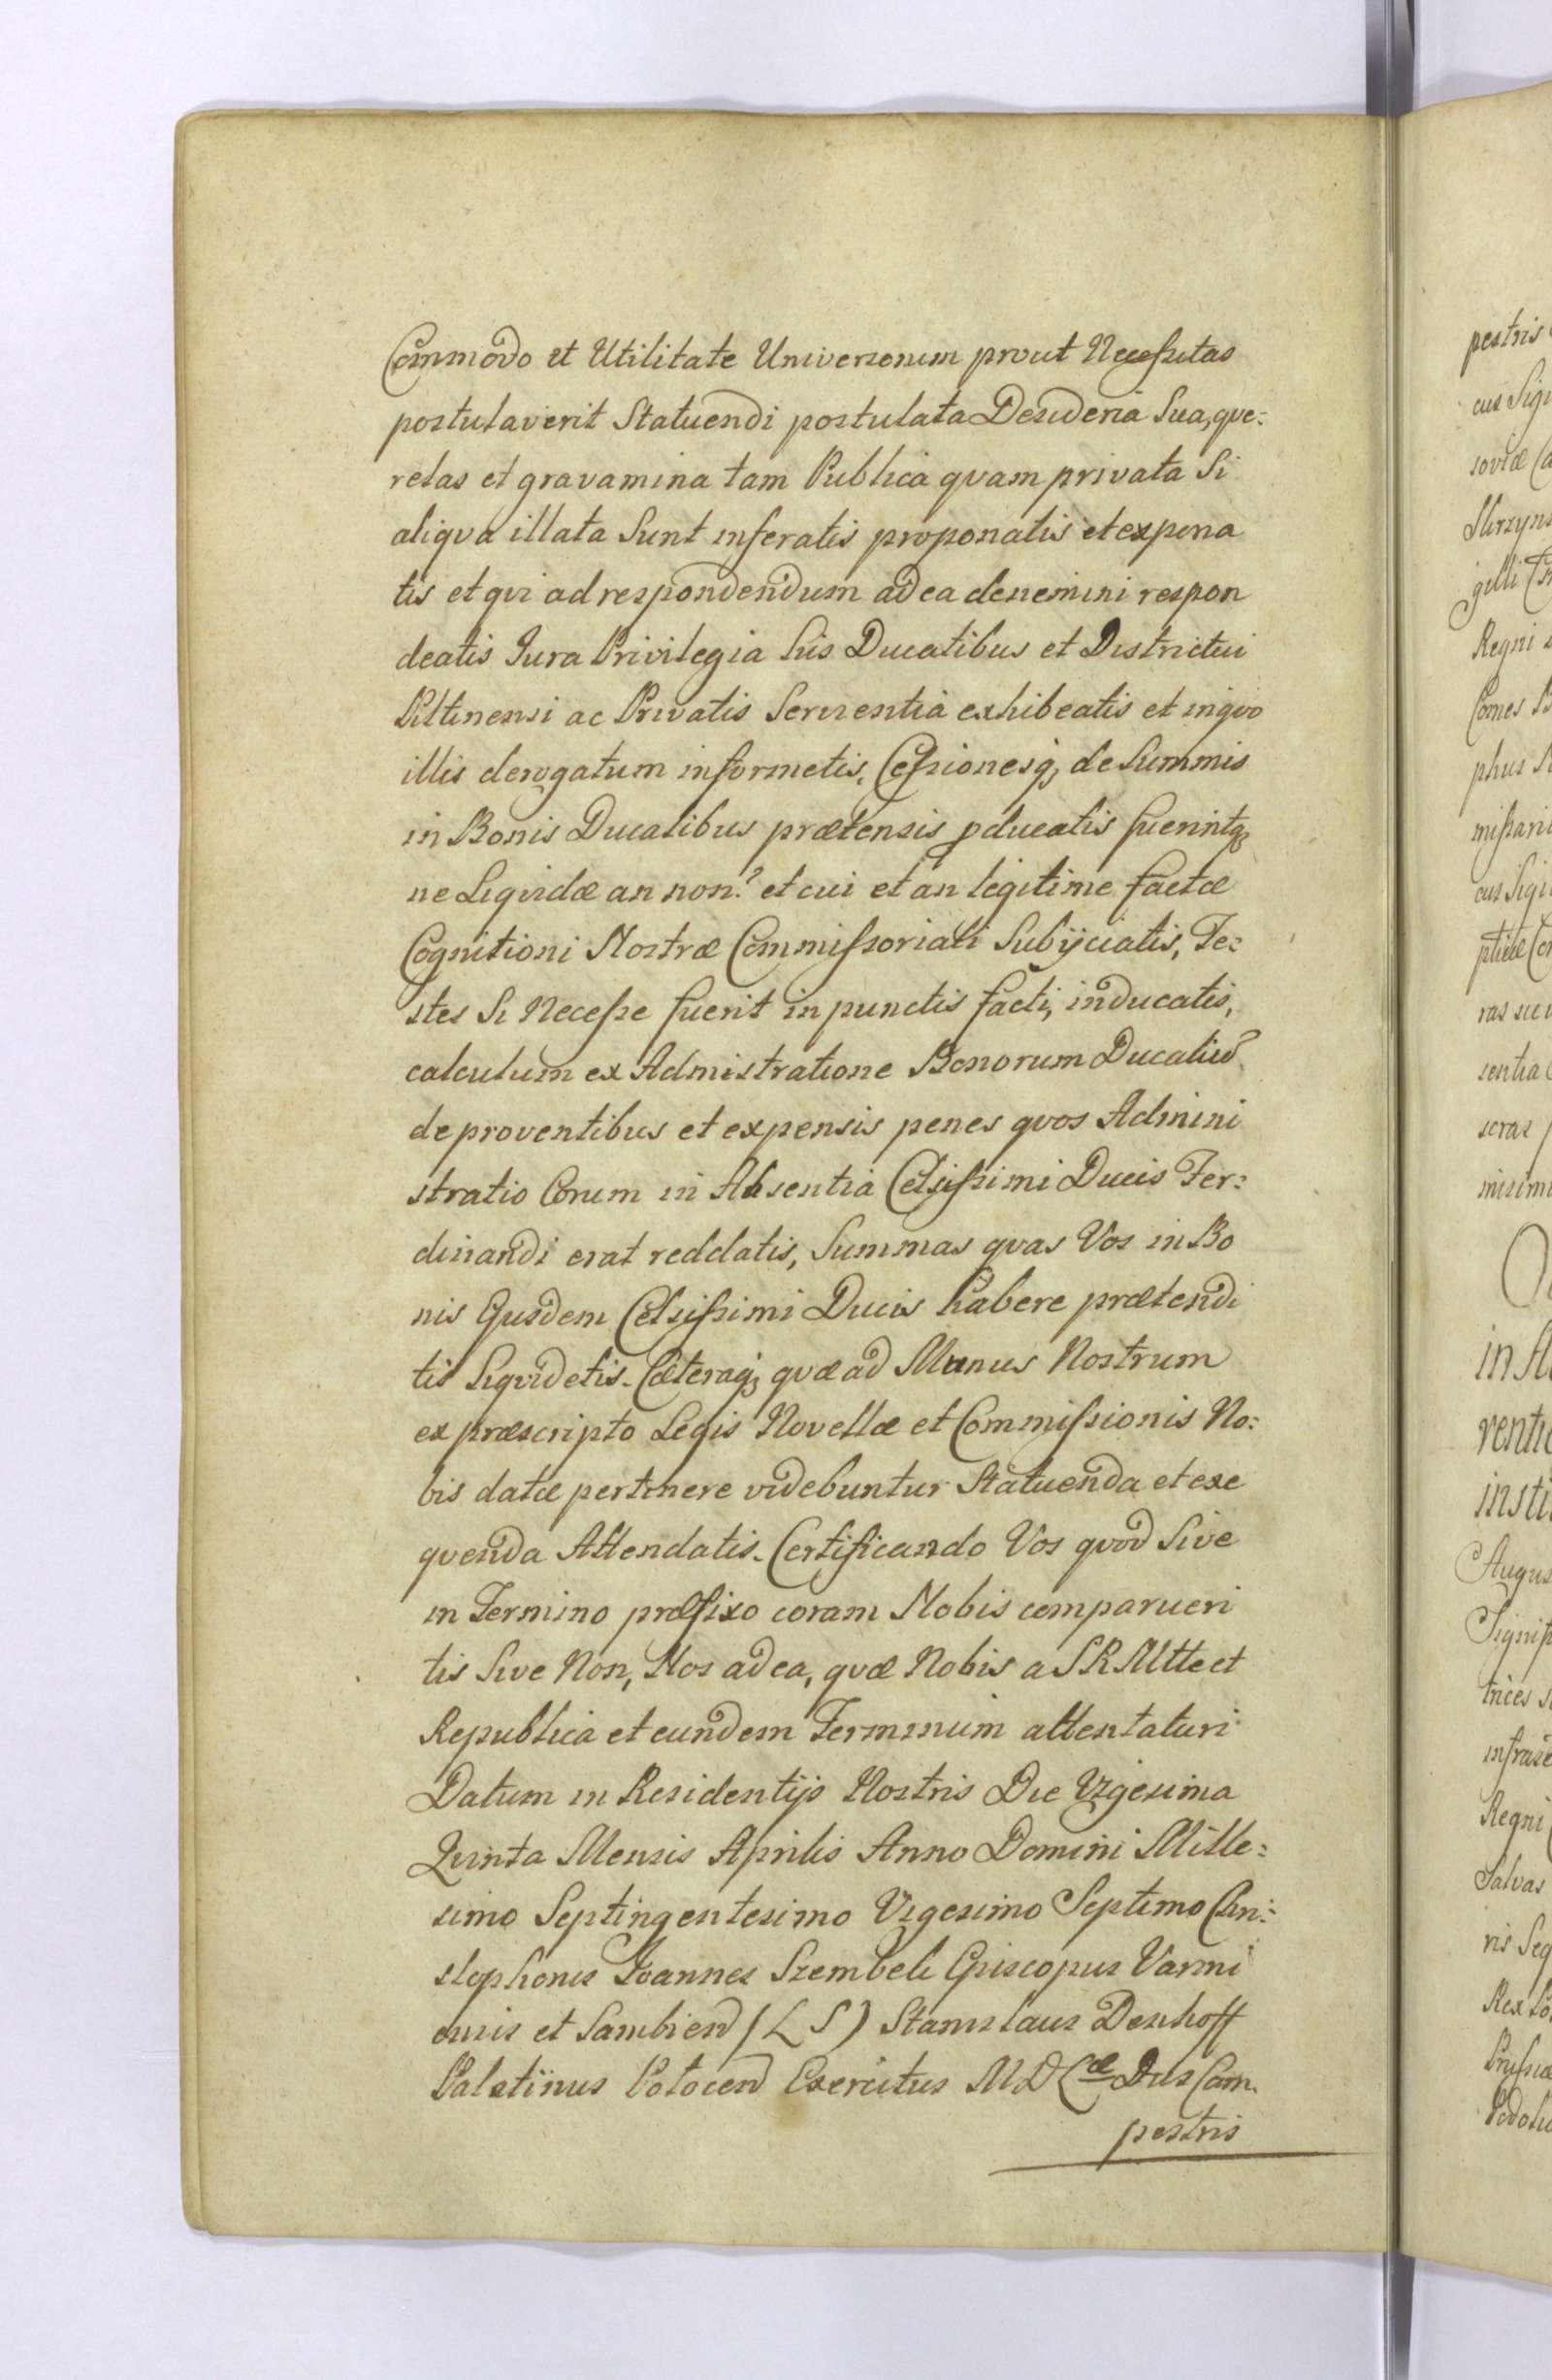 Commodo et Utilitate Universorum prout Necessitas
postulaverit Statuendi postulata Desideria Sua, que:
relas et gravamina tam Publica quam privata Si
aliqva illata Sunt inferatis proponatis et expona
tis et qvi ad respondendum ad ea denemini respon
deatis Jura Privilegia his Ducatibus et Districtui
Piltinensi ac Privatis Servientia exhibeatis et inqvo
illis derogatum informetis, Cessionesq, de Summis
in Bonis Ducalibus prætensis pducatis fuerintq
ne Liqvidæ an non? et cui et an legitime factæ
Cognitioni Nostræ Commissoriali Subijciatis, Te:
stes Si Necesse fuerit in punctis facti, inducatis,
calculum ex Admistratione Bonorum Ducaliu
de proventibus et expensis penes qvos Admini
stratio Eorum in Absentia Celsissimi Ducis Fer:
dinandi erat reddatis, Summas qvas Vos in Bo
nis Ejusdem Celsissimi Ducis habere prætendi
tis Liqvidetis. Cæteraq qvæ ad Munus Nostrum
ex præscripto Legis Novellæ et Commissionis No:
bis datæ pertinere videbuntur Statuenda et exe
qvenda Attendatis. Certificando Vos qvod Sive
in Termino præfixo coram Nobis comparueri
tis Sive Non, Nos ad ea, qvæ Nobis a S R Mtte et
Republica et eundem Terminum attentaturi
Datum in Residentijs Nostris Die Vigesima
Qvinta Mensis Aprilis Anno Domini Mille:
simo Septingentesimo Vigesimo Septimo Chri:
stophorus Joannes Szembek Episcopus Varmi
ensis et Sambien (L S) Stanislaus Denhoff
Palatinus Polocen Exercitus M D Cæ Dux Cam.
pestris
pestris
cus Sigi
soviæ Ca
gilli
Regni
Comes
phus
ras
sentia
in
instit
Augus
Signif
trices
Regni
Salvas
ris Seq
Rex Po
Prussiæ
Podoli